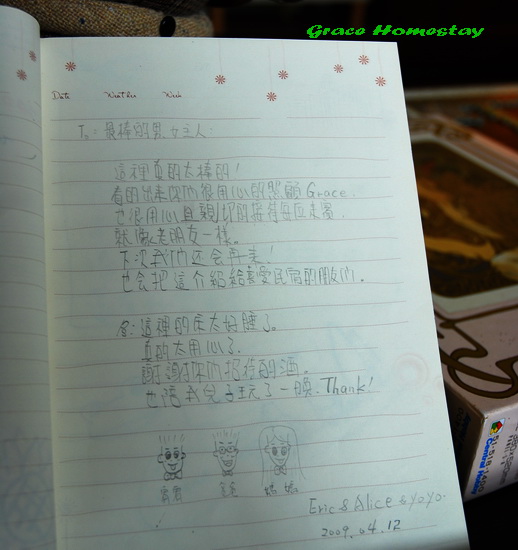 Grace Homestay
Date Weather Week
To: 最棒的男女主人:
這裡真的太棒的!
看的出來你們很用心的照顧Grace.
也很用心且親切的接待每位
就像老朋友一樣。
下次我们还会再來!
也会把這介紹給喜愛民宿的朋友们.
這裡的床太好睡了。
真的太用心了.
謝謝你們招待的酒.
也陪我兒子玩了一晚. Thank!
爸爸 媽媽
Eric & Alice & yoyo.
2009.04.12